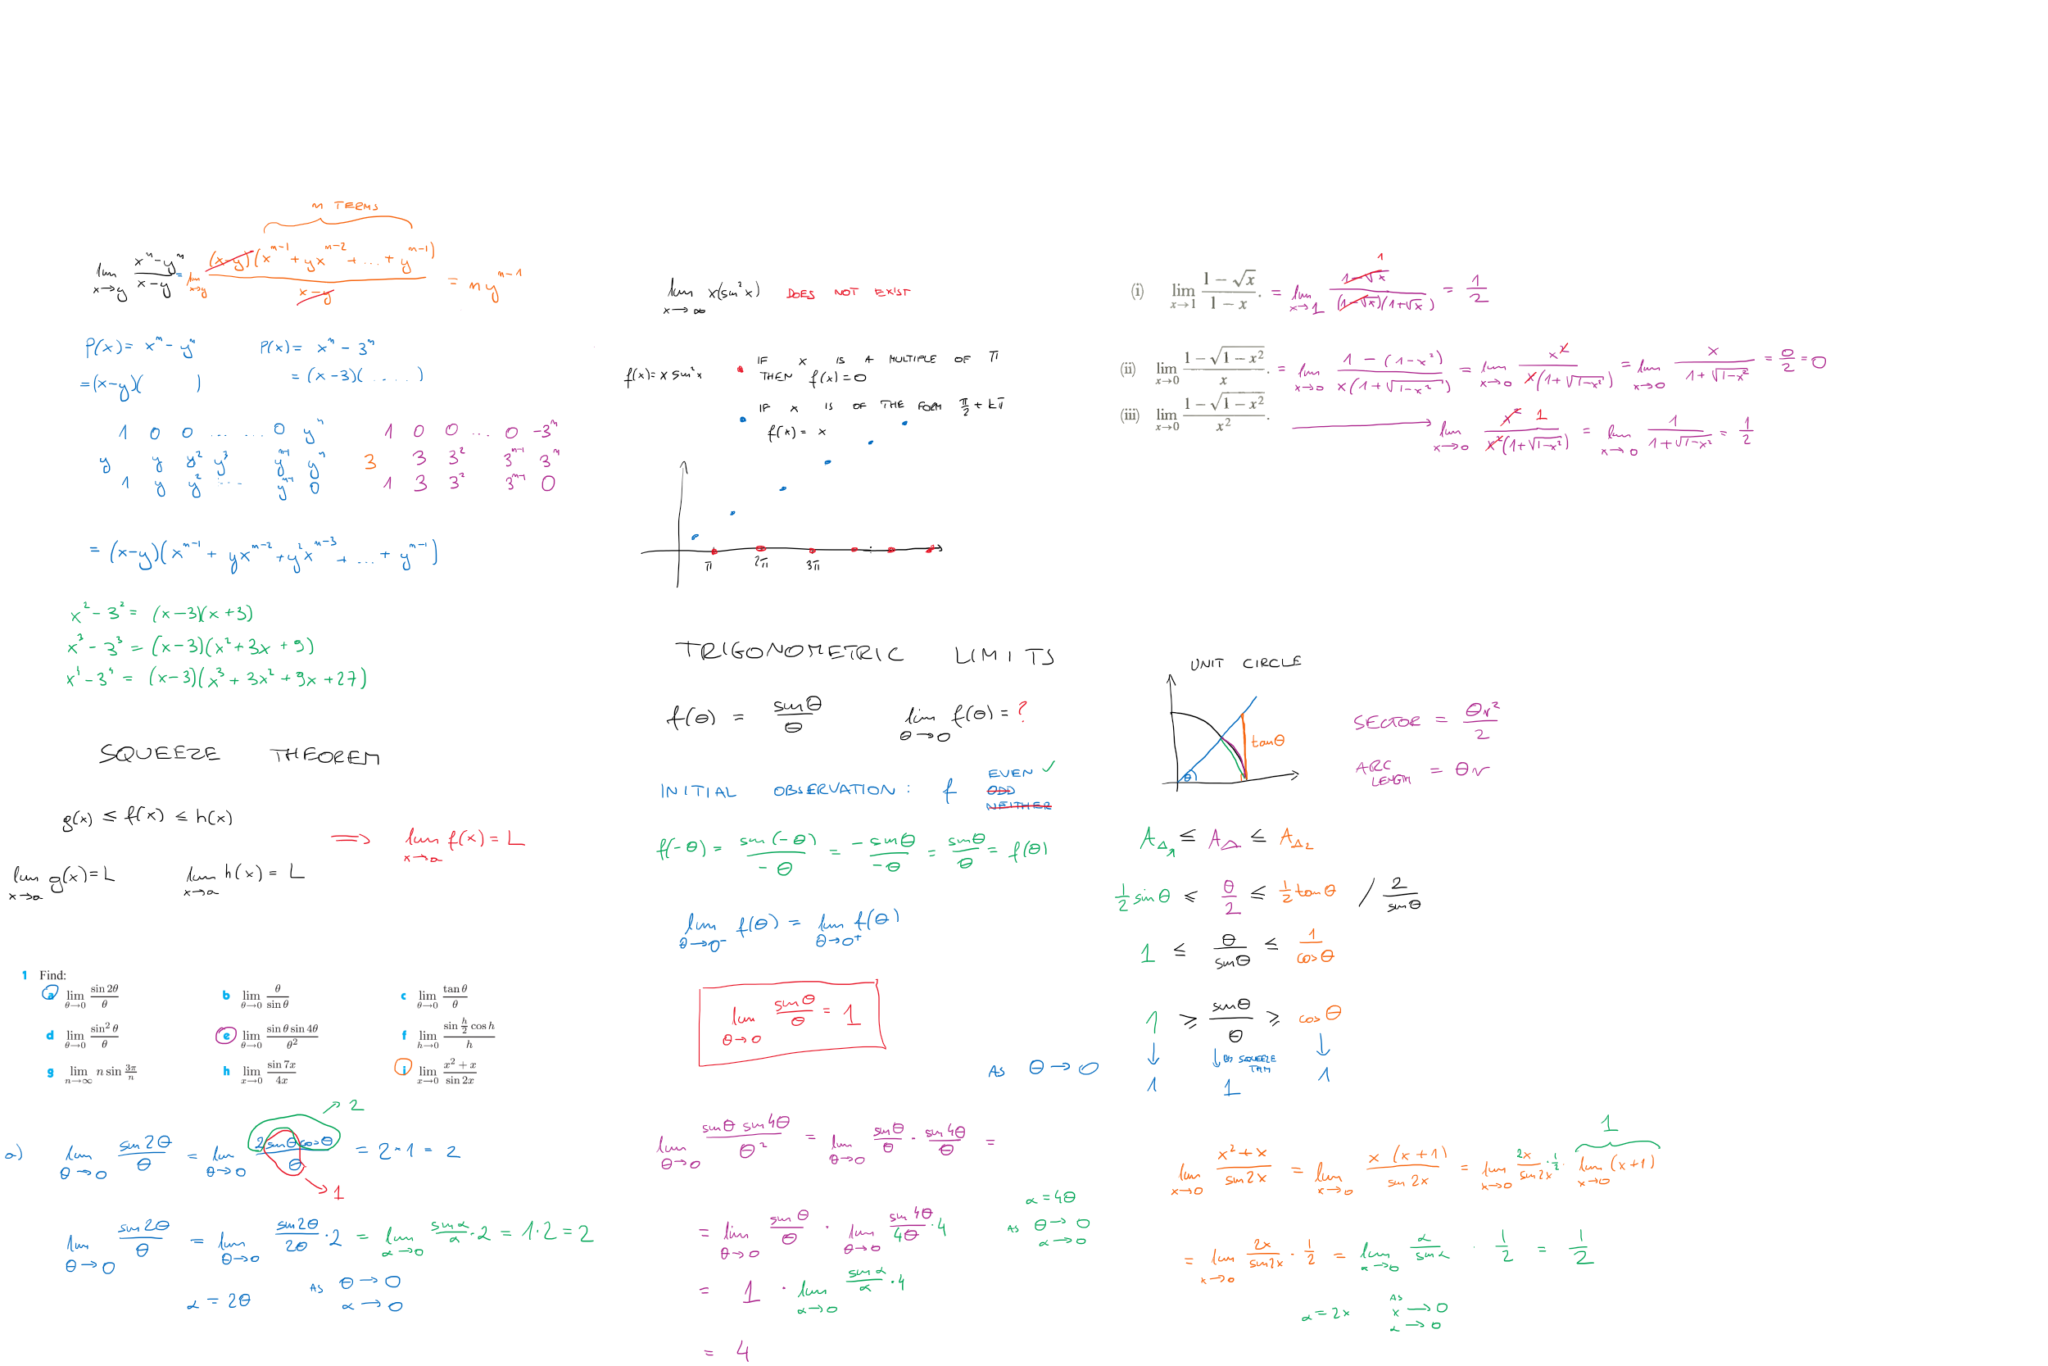 n TERMS
lim x→y (xⁿ-yⁿ)/(x-y) = lim x→y ((x-y)(xⁿ⁻¹ + yxⁿ⁻² + ... + yⁿ⁻¹))/(x-y) = nyⁿ⁻¹
P(x) = xⁿ - yⁿ
=(x-y)( )
P(x) = xⁿ - 3ⁿ
= (x-3)( ..... )
1 0 0 ... ... 0 yⁿ
y y y² y³ yⁿ⁻¹ yⁿ
1 y y² ... yⁿ⁻¹ 0
1 0 0 ... 0 -3ⁿ
3 3 3² 3ⁿ⁻¹ 3ⁿ
1 3 3² 3ⁿ⁻¹ 0
= (x-y)(xⁿ⁻¹ + yxⁿ⁻² + y²xⁿ⁻³ + ... + yⁿ⁻¹)
x² - 3² = (x-3)(x+3)
x³ - 3³ = (x-3)(x² + 3x + 9)
x⁴ - 3⁴ = (x-3)(x³ + 3x² + 9x + 27)
SQUEEZE THEOREM
g(x) ≤ f(x) ≤ h(x)
lim x→a g(x) = L lim x→a h(x) = L
⇒ lim x→a f(x) = L
1 Find:
a lim θ→0 sin 2θ/θ b lim θ→0 θ/sin θ c lim θ→0 tan θ/θ
d lim θ→0 sin² θ/θ e lim θ→0 sin θ sin 4θ/θ² f lim h→0 (sin h/2 cos h)/h
g lim n→∞ n sin 3π/n h lim x→0 sin 7x/4x i lim x→0 (x² + x)/sin 2x
a) lim θ→0 sin 2θ/θ = lim θ→0 2 sin θ cos θ/θ = 2·1 = 2
→ 2
→ 1
lim θ→0 sin 2θ/θ = lim θ→0 sin 2θ/2θ · 2 = lim α→0 sin α/α · 2 = 1·2 = 2
α = 2θ AS θ→0
α→0
lim x→∞ x(sin²x) DOES NOT EXIST
f(x) = x sin²x
IF x IS A MULTIPLE OF π
THEN f(x) = 0
IF x IS OF THE FORM π/2 + kπ
f(x) = x
π 2π 3π
TRIGONOMETRIC LIMITS
f(θ) = sin θ/θ lim θ→0 f(θ) = ?
INITIAL OBSERVATION: f EVEN ✓
ODD
NEITHER
f(-θ) = sin(-θ)/-θ = -sin θ/-θ = sin θ/θ = f(θ)
lim θ→0⁻ f(θ) = lim θ→0⁺ f(θ)
lim θ→0 sin θ/θ = 1
lim θ→0 sin θ sin 4θ/θ² = lim θ→0 sin θ/θ · sin 4θ/θ =
= lim θ→0 sin θ/θ · lim θ→0 sin 4θ/4θ · 4
α = 4θ
AS θ→0
α→0
= 1 · lim α→0 sin α/α · 4
= 4
(i) lim x→1 (1 - √x)/(1 - x). = lim x→1 (1-√x)/((1-√x)(1+√x)) 1 = 1/2
(ii) lim x→0 (1 - √(1 - x²))/x. = lim x→0 (1 - (1-x²))/(x(1+√(1-x²))) = lim x→0 x²/(x(1+√(1-x²))) = lim x→0 x/(1+√(1-x²)) = 0/2 = 0
(iii) lim x→0 (1 - √(1 - x²))/x². → lim x→0 x² 1/(x²(1+√(1-x²))) = lim x→0 1/(1+√(1-x²)) = 1/2
UNIT CIRCLE
θ
tan θ
SECTOR = θr²/2
ARC LENGTH = θr
A△₁ ≤ A⌓ ≤ A△₂
1/2 sin θ ≤ θ/2 ≤ 1/2 tan θ / 2/sin θ
1 ≤ θ/sin θ ≤ 1/cos θ
1 ≥ sin θ/θ ≥ cos θ
AS θ→0 ↓ ↓ BY SQUEEZE THM ↓
1 1 1
lim x→0 (x²+x)/sin 2x = lim x→0 x(x+1)/sin 2x = lim x→0 2x/sin 2x · 1/2 · lim x→0 (x+1)
1
= lim x→0 2x/sin 2x · 1/2 = lim α→0 α/sin α · 1/2 = 1/2
α = 2x AS x→0
α→0